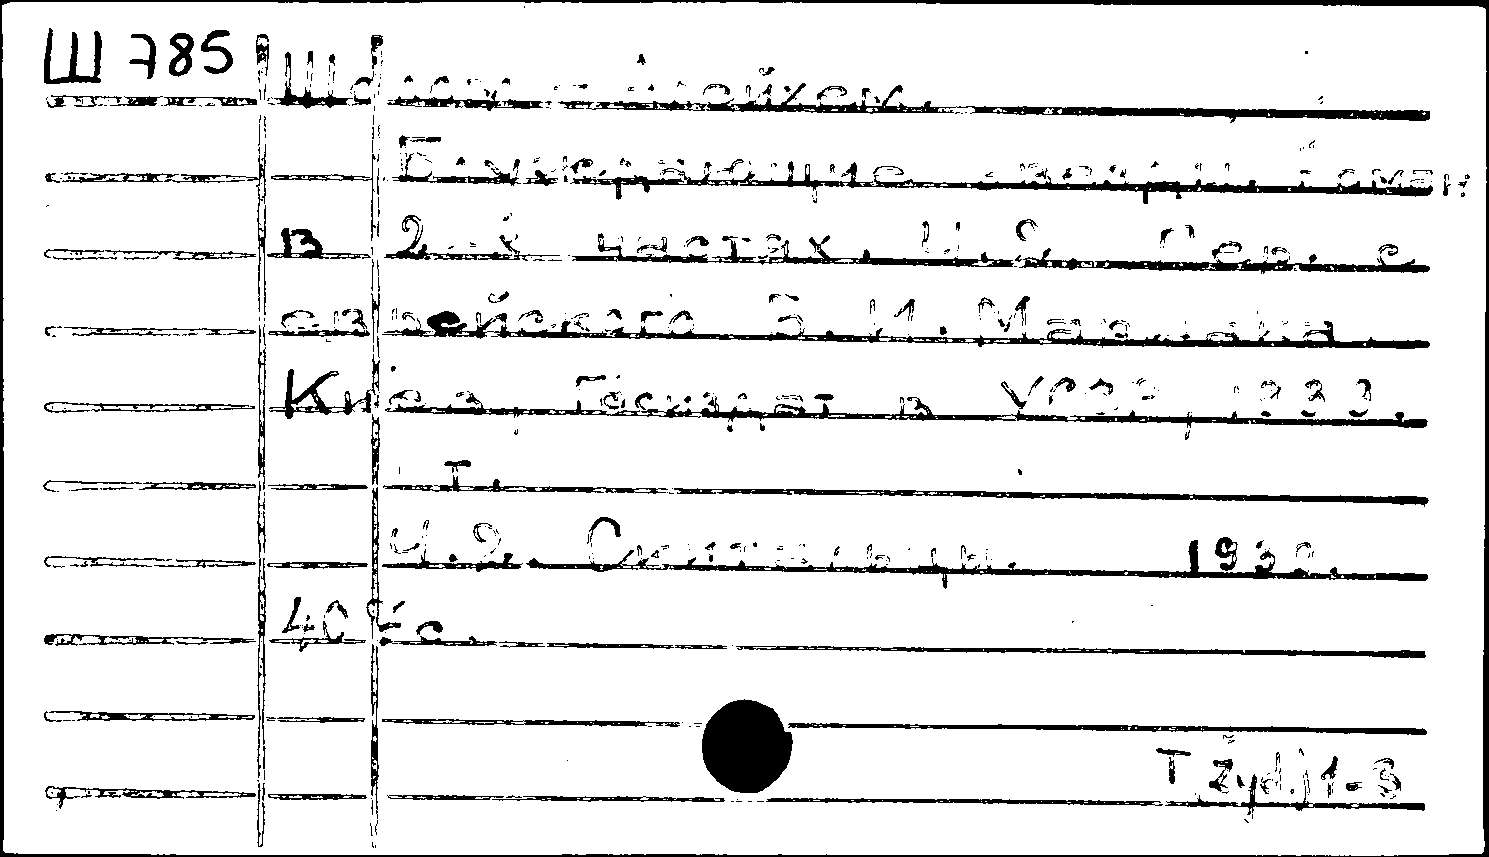 Ш 785
Шолом - Алейхем.
Блуждающие звезды. Роман
в 2-х частях. Ч. 2. Пер. с
еврейского Э. И. Маршака.
Киев, Госиздат в УРСР, 1930.
т.
Ч.2. Скитальцы. 1930.
с.
T žyd.j 1-3